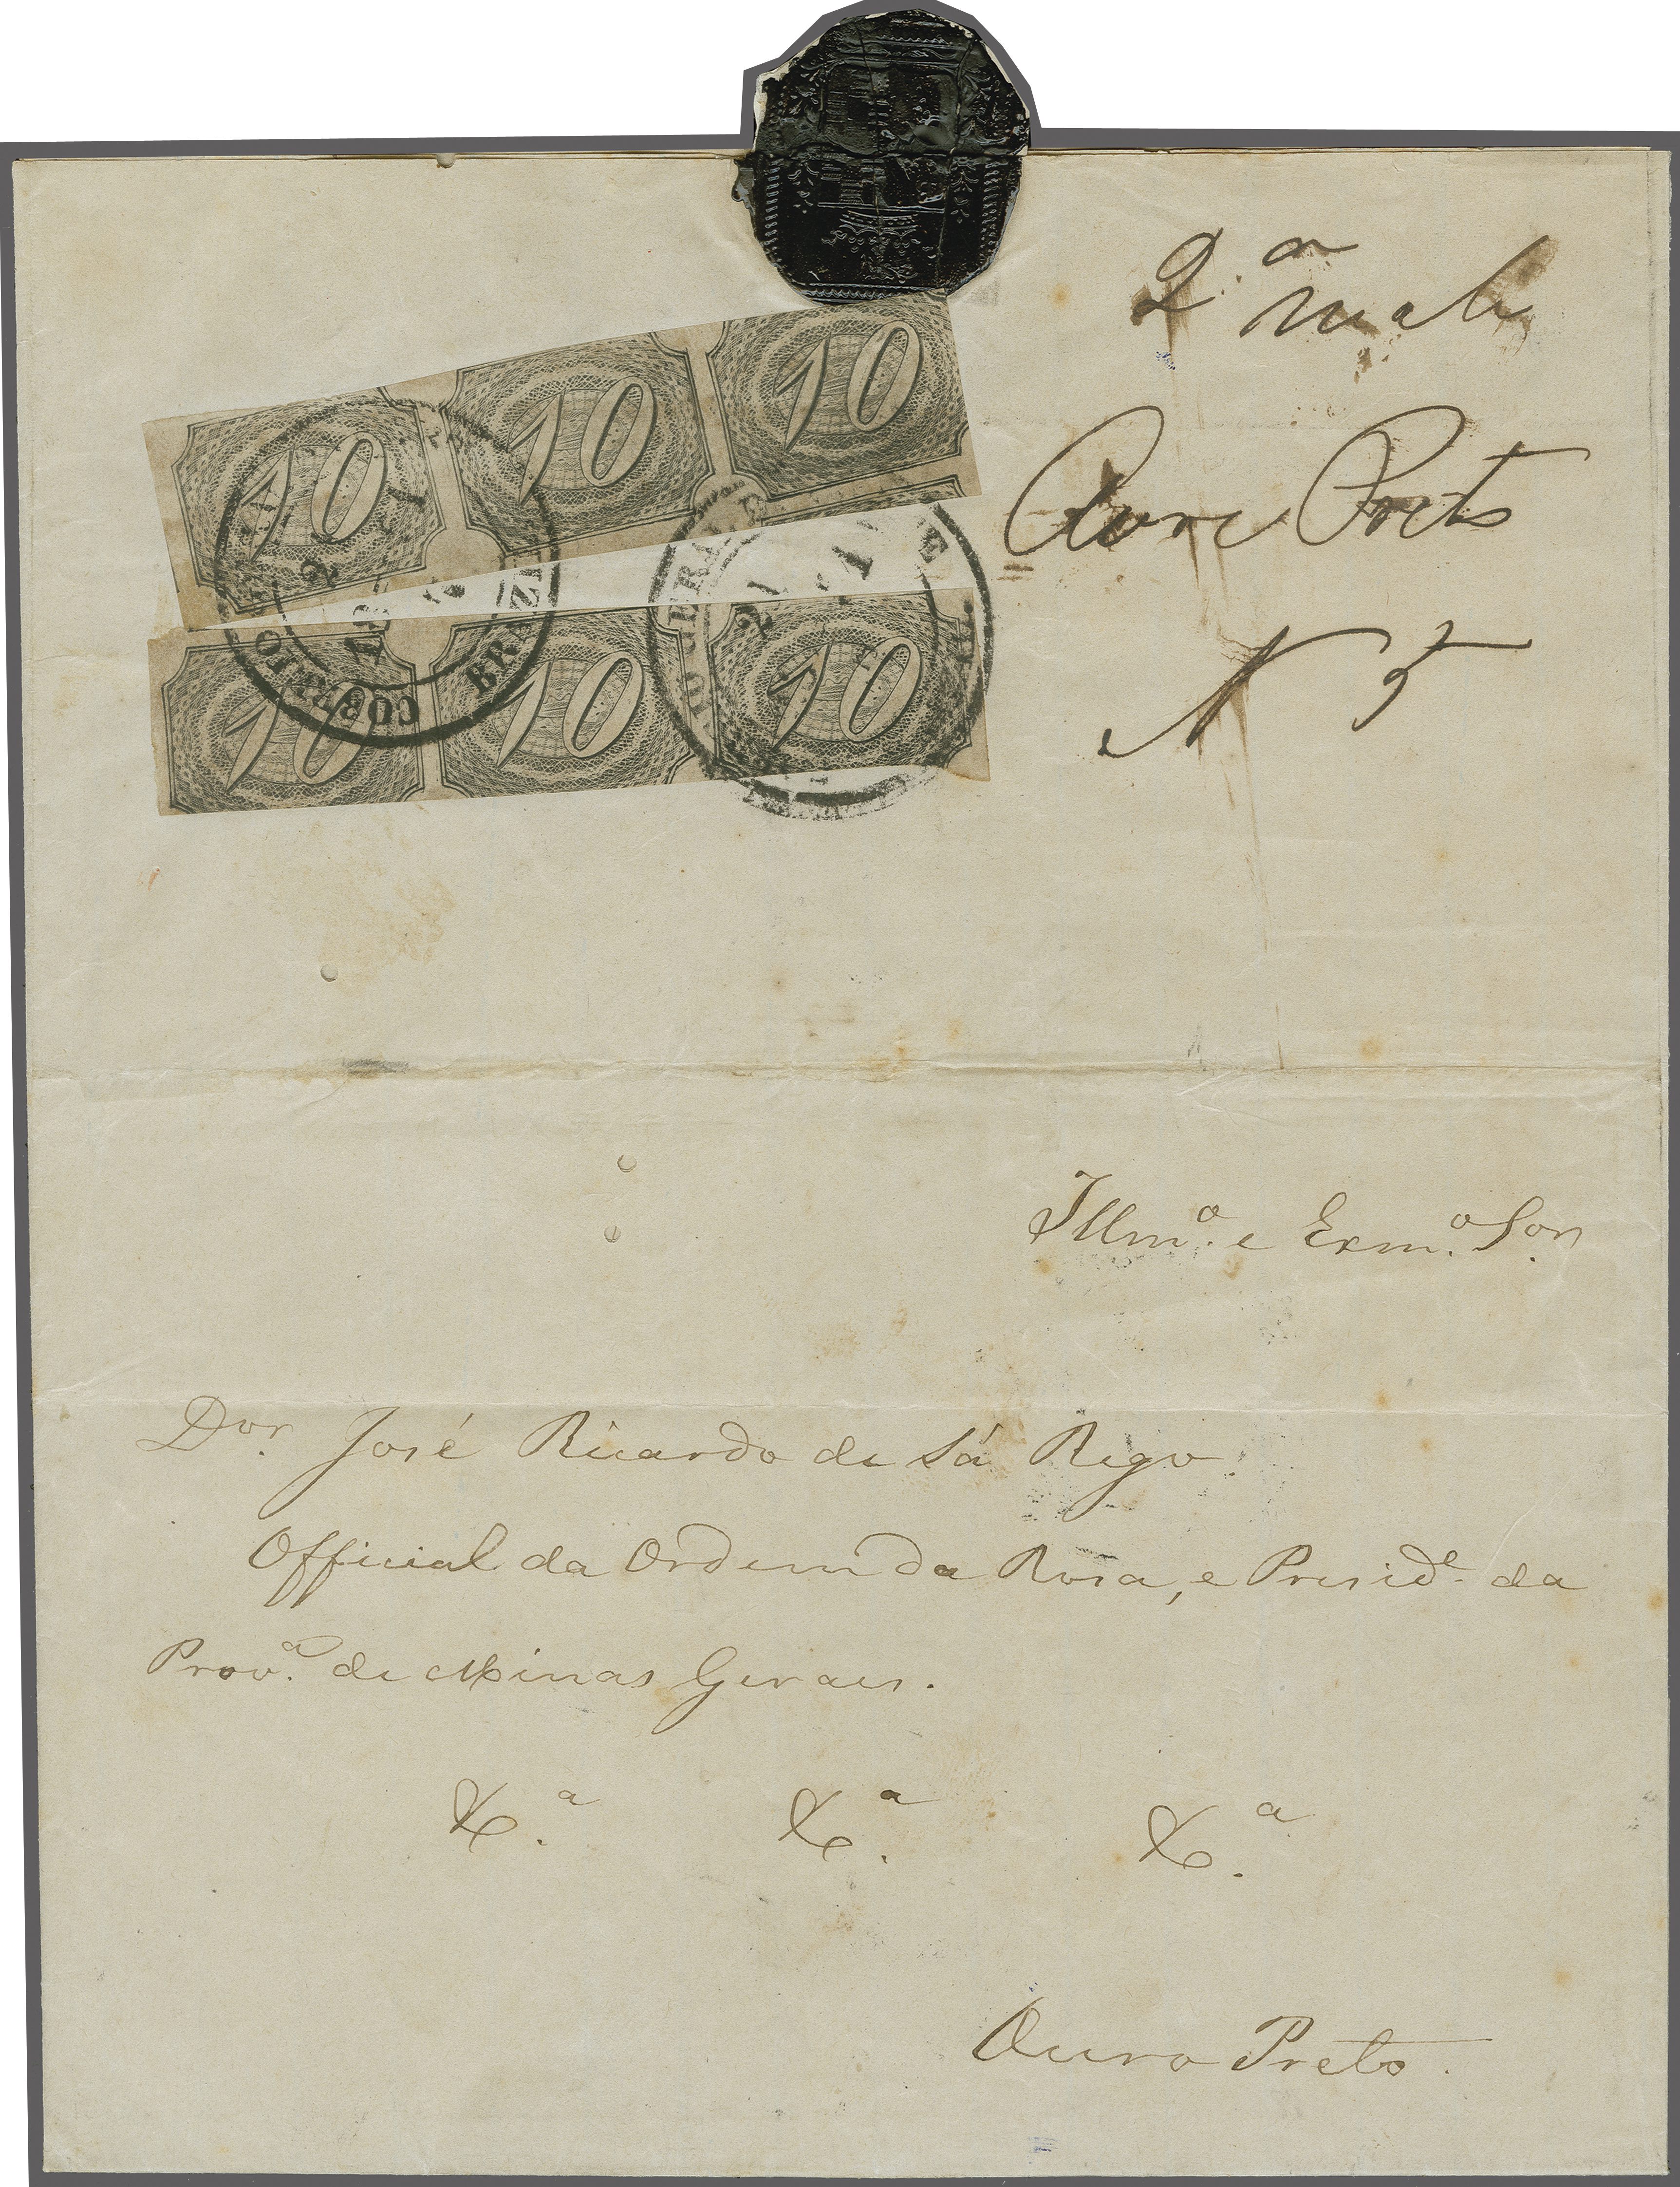 2.ª mala
Ouro Preto
N 5
10 10 10
10 10 10
CORREIO GERAL
BRAZIL
21
Illm.º e Exm.º Sor.
Dor. José Ricardo de Sá Rego
Official da Ordem da Rosa, e Presid.e da
Prov.ª de Minas Geraes.
&.ª &.ª &.ª
Ouro Preto.